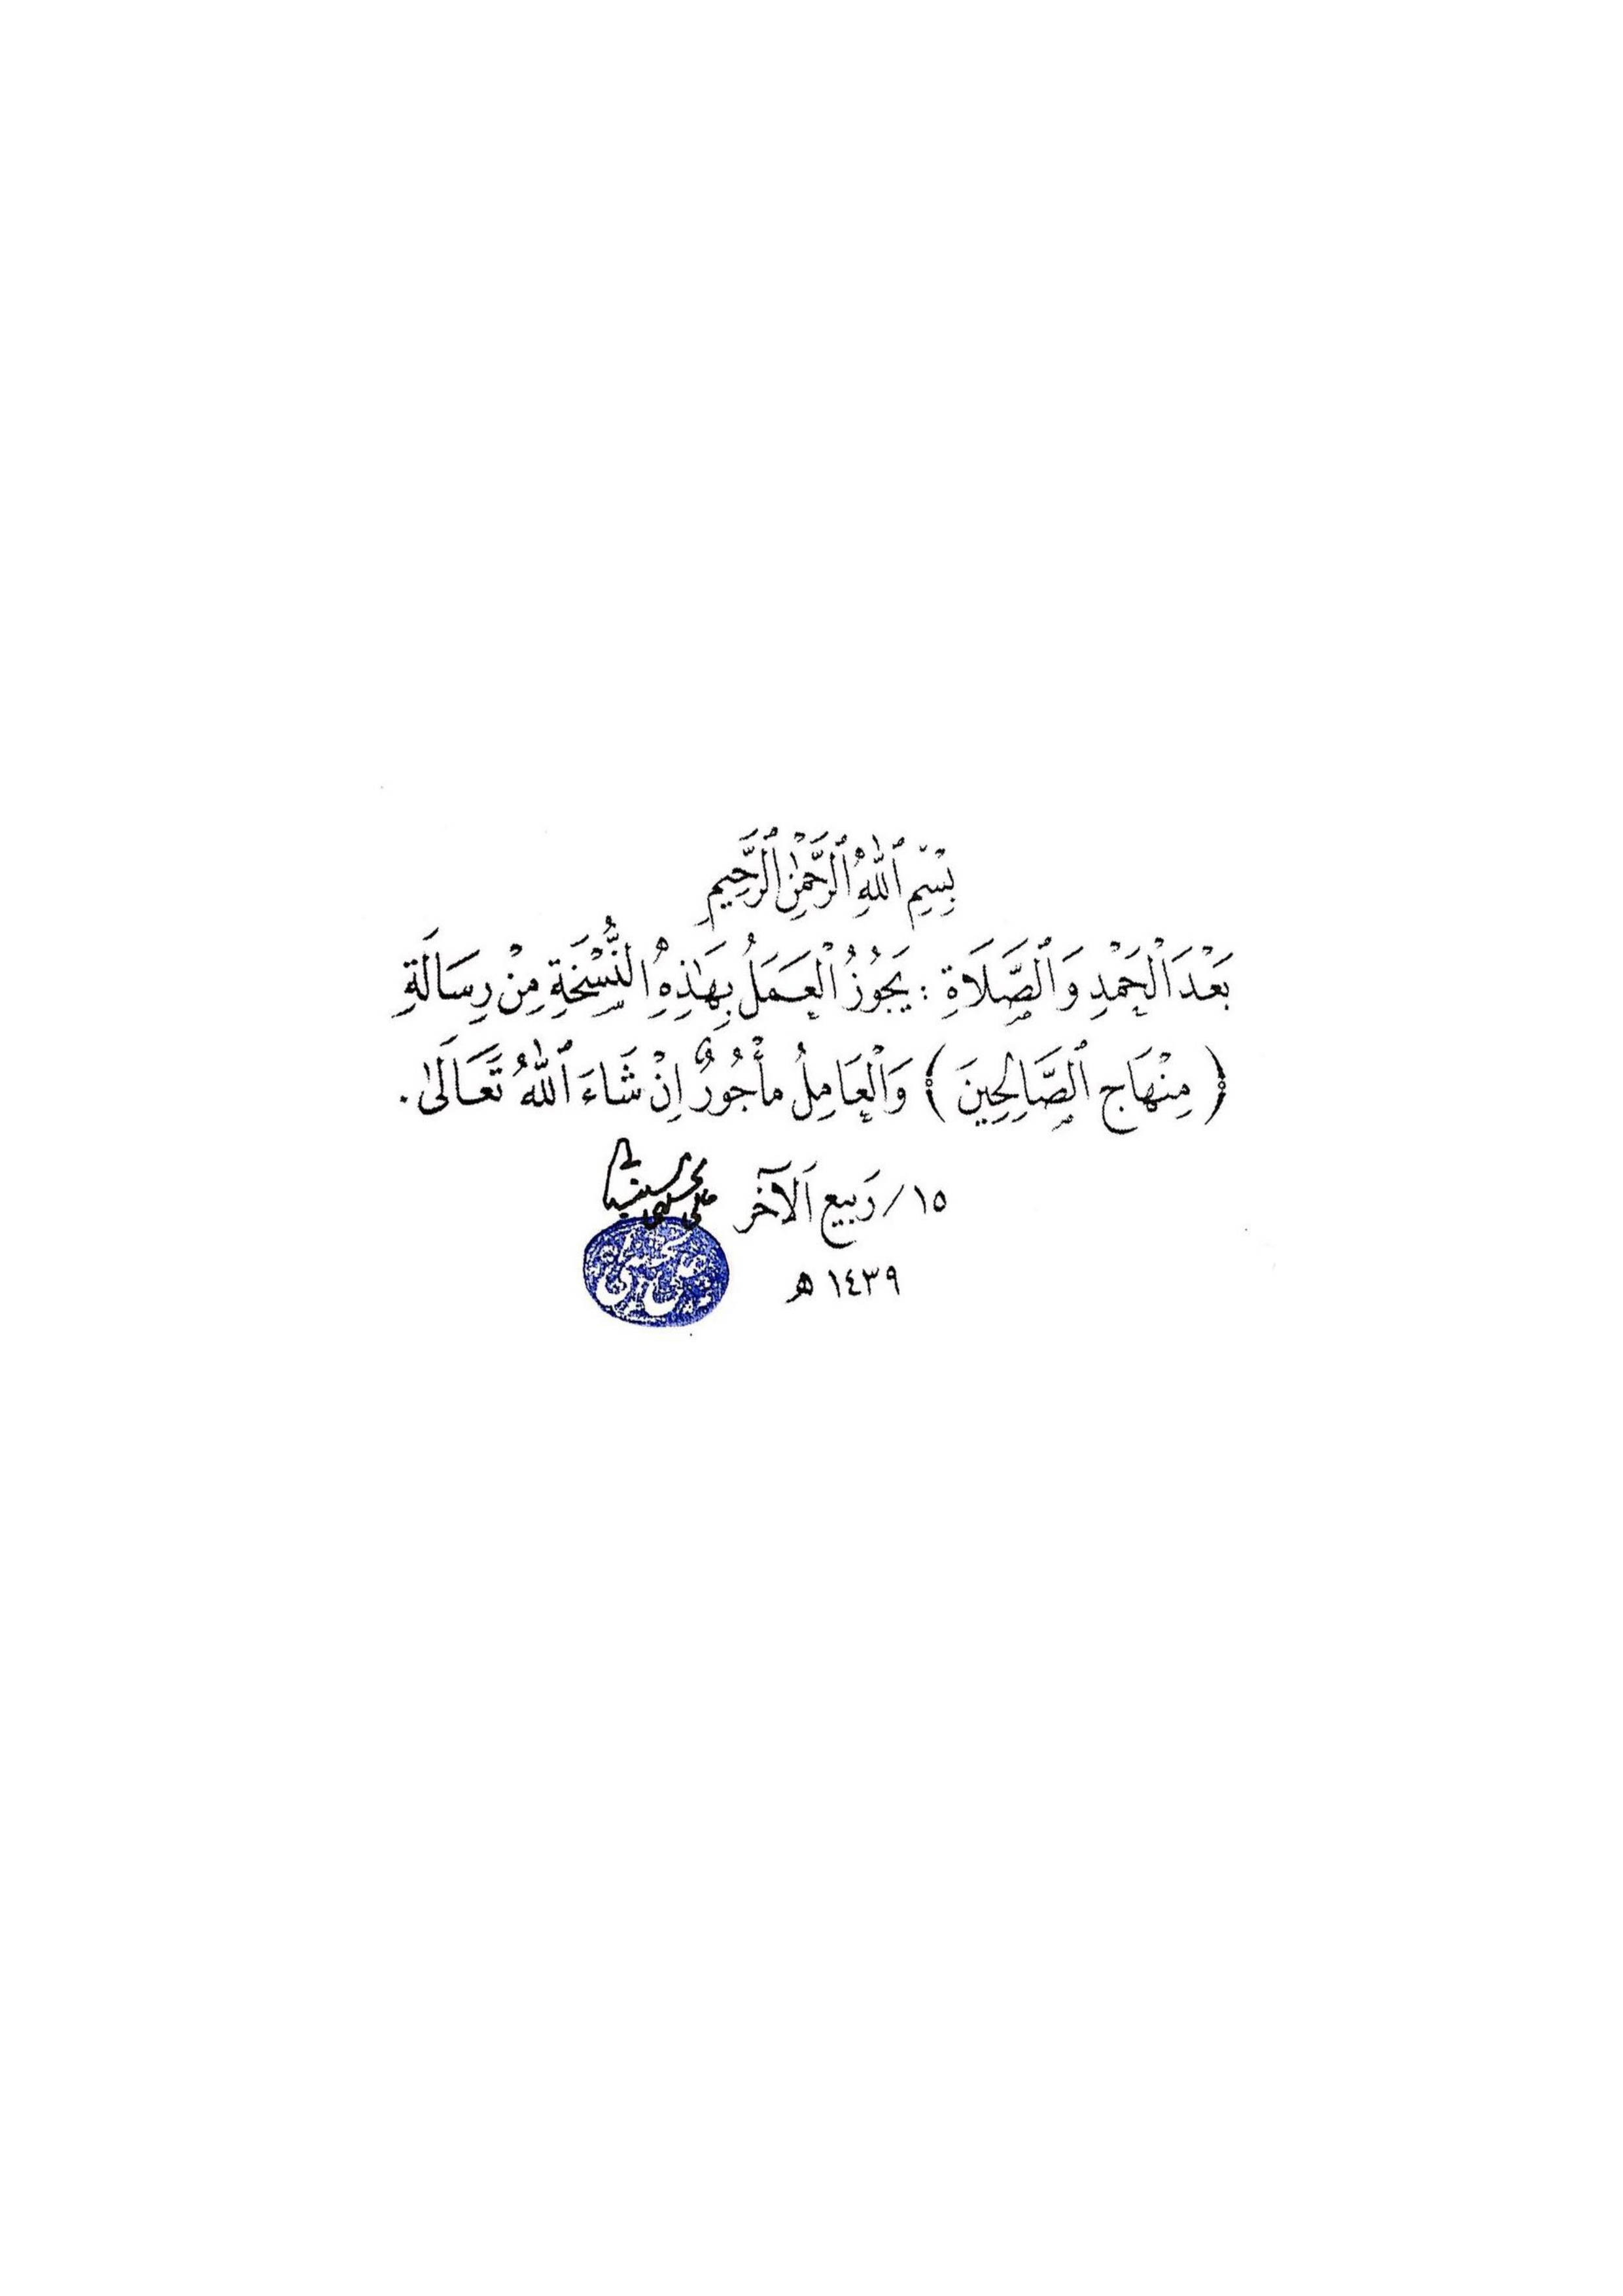 بِسْمِ ٱللّٰهِ ٱلرَّحْمٰنِ ٱلرَّحِيمِ
بَعْدَ الْحَمْدِ وَٱلصَّلَاةِ : يَجُوزُ الْعَمَلُ بِهٰذِهِ النُّسْخَةِ مِنْ رِسَالَةِ
( مِنْهَاج ٱلصَّالِحِينَ ) وَالْعَامِلُ مأْجُورٌ اِنْ شَاءَ ٱللّٰهُ تَعَالَىٰ .
١٥/ رَبِيع اَلآخَر
١٤٣٩ هـ